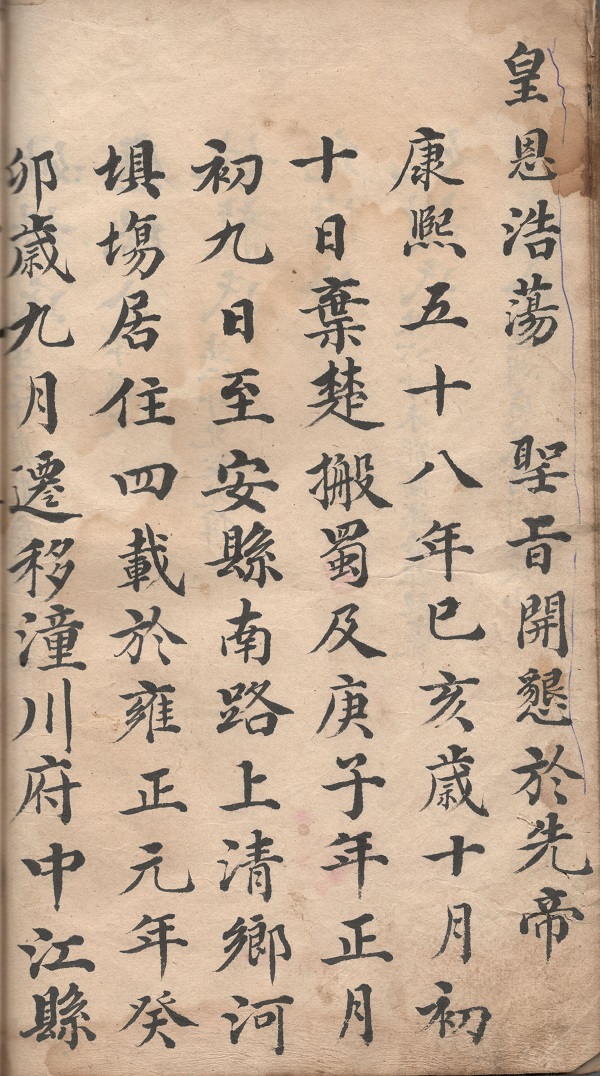 皇恩浩蕩 聖旨開懇於先帝
康熙五十八年巳亥歲十月初
十日棄楚搬蜀及庚子年正月
初九日至安縣南路上清鄉河
埧塲居住四載於雍正元年癸
卯歲九月遷移潼川府中江縣